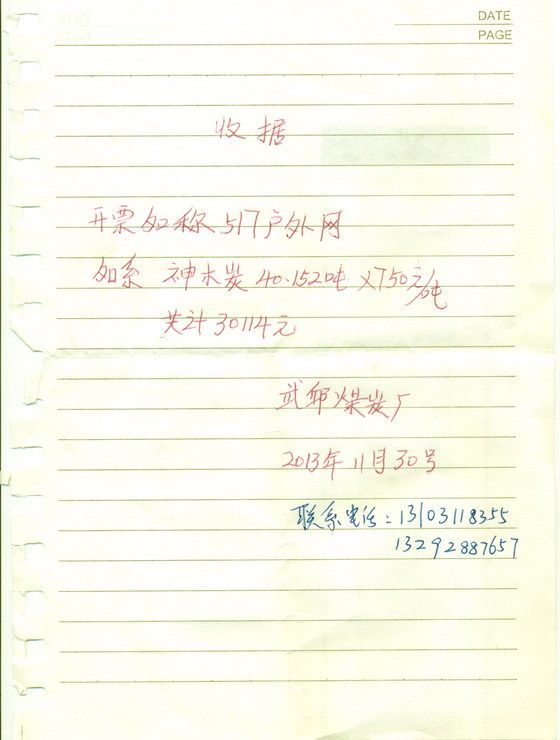 DATE
PAGE
收据
开票名称517户外网
名系 神木炭 40.152吨 ×750元/吨
共计30114元
武邱煤炭厂
2013年11月30号
联系电话：13103118355
13292887657